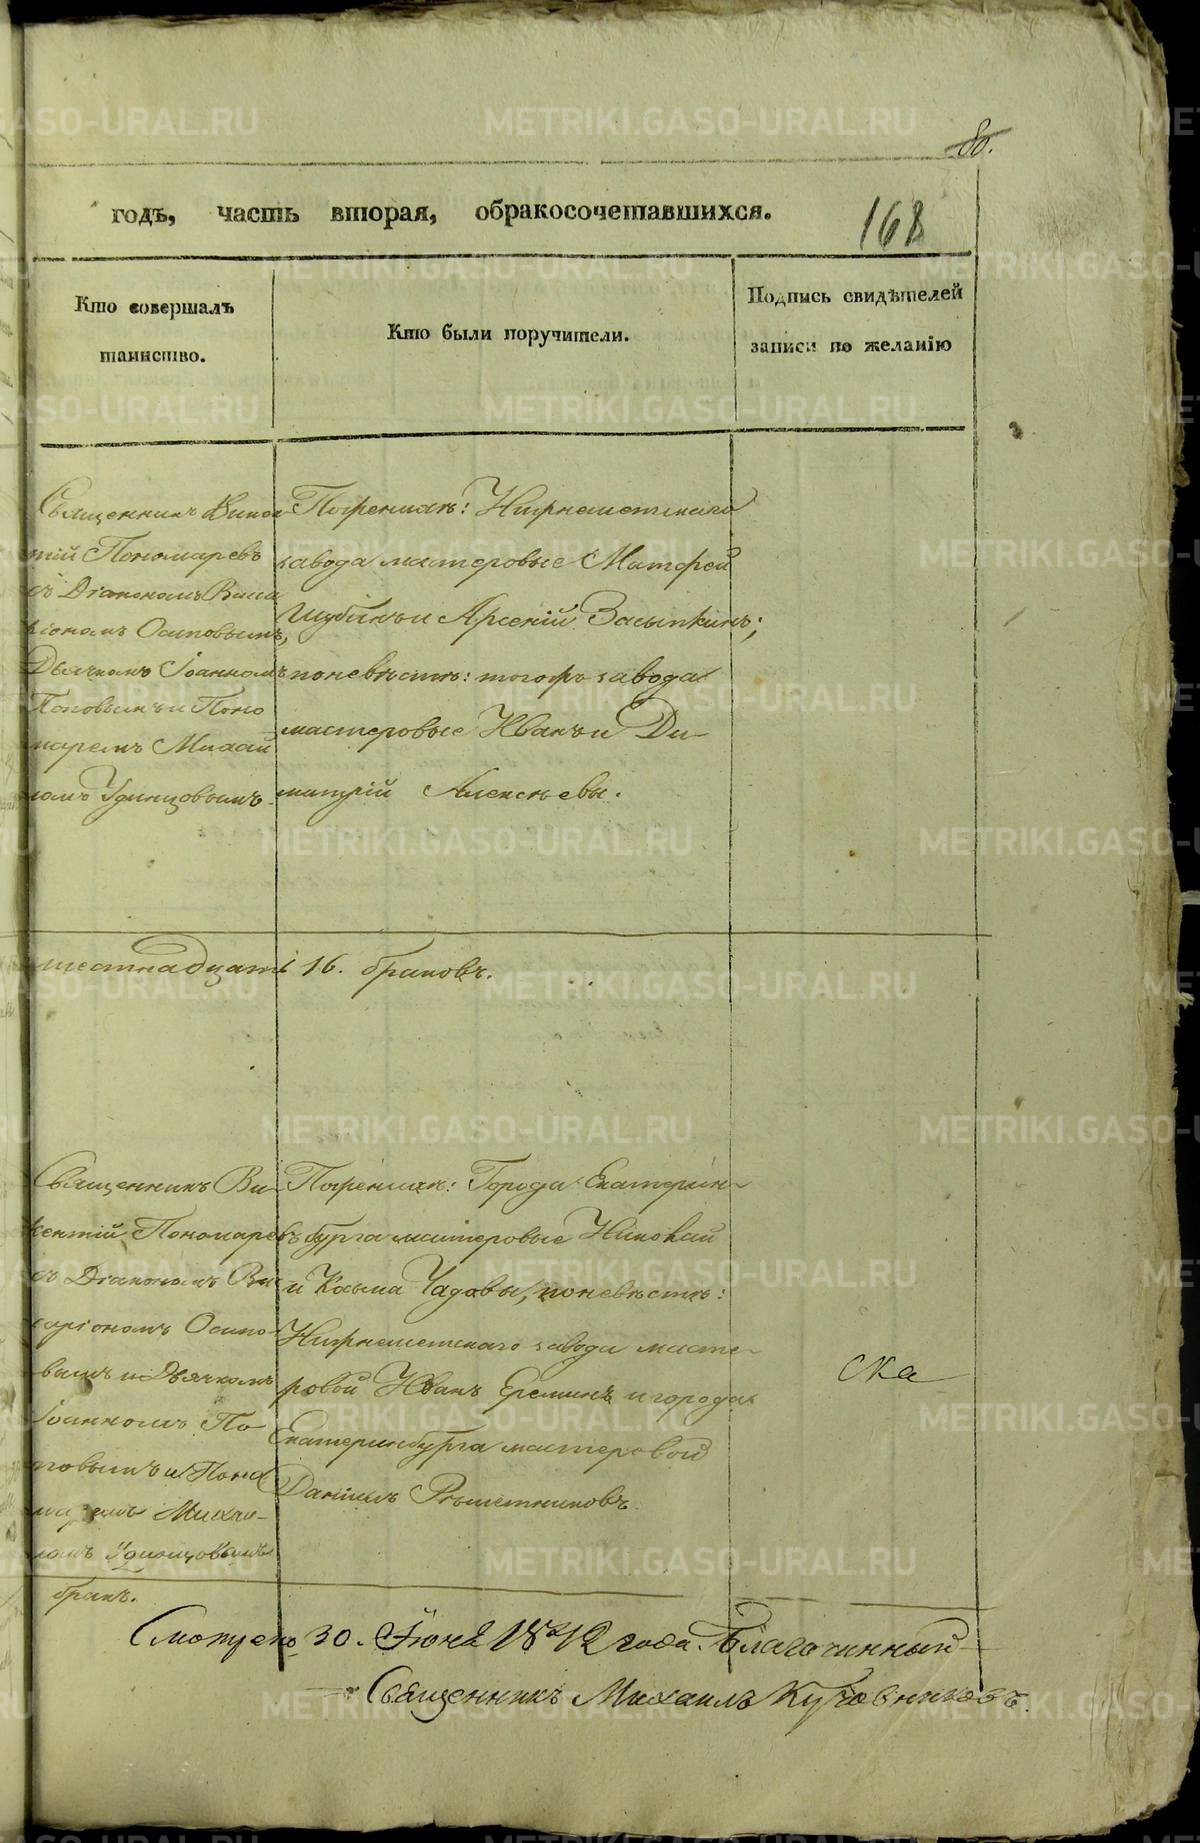 80.
годъ, часть вторая, обракосочетавшихся.
168
Кто совершалъ
таинство.
Кто были поручители.
Подпись свидѣтелей
записи по желанію
Священникъ Викен
тій Пономаревъ
съ Діакономъ Висса
ріономъ Осиповымъ,
Дьячкомъ Іоанномъ
Поповымъ и Поно
маремъ Михаи
ломъ Удинцовымъ.
Поженихѣ: Нижнеисетскаго
завода мастеровые Матфей
Шубинъ и Арсеній Засыпкинъ;
поневѣстѣ: тогожъ завода
мастеровые Иванъ и Ди-
митрій Алексѣевы.
шестнадцать 16. браковъ.
Священникъ Ви-
кентій Пономаревъ
съ Діакономъ Вис
саріономъ Осипо-
вымъ и Дьячкомъ
Іоанномъ По-
повымъ и Поно
маремъ Михаи-
ломъ Удинцовымъ
Поженихѣ: Города Екатерин-
бурга мастеровые Николай
и Козьма Чадовы, поневѣстѣ:
Нижнеисетскаго завода масте-
ровой Иванъ Ереминъ и города
Екатеринбурга мастеровой
Даніилъ Рѣшетниковъ.
ска
бракъ.
Смотрено 30. Іюня 1842 года. Благочинный
Священникъ Михаилъ
METRIKI.GASO-URAL.RU